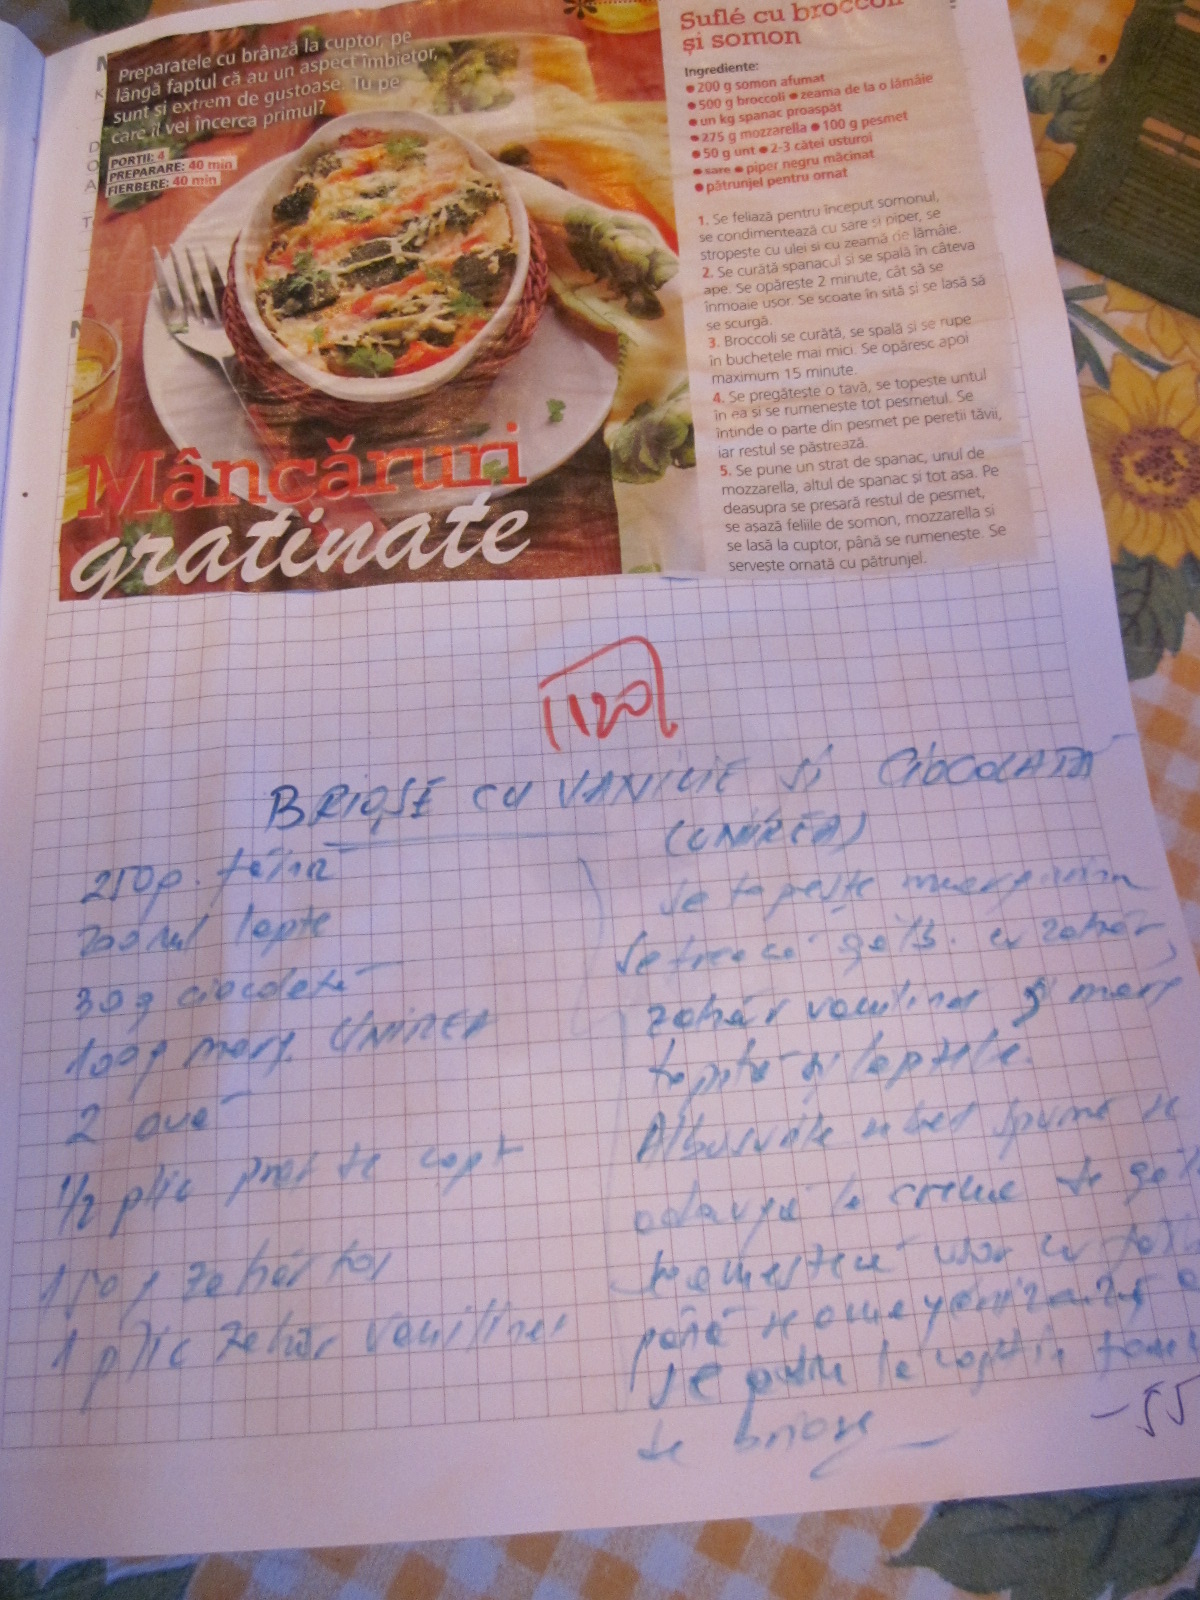 Preparatele cu brânză la cuptor, pe
lângă faptul că au un aspect îmbietor,
sunt și extrem de gustoase. Tu pe
care îl vei încerca primul?
PORȚII: 4
PREPARARE: 40 min
FIERBERE: 40 min
Mâncăruri
gratinate
Suflé cu broccoli
și somon
Ingrediente:
• 200 g somon afumat
• 500 g broccoli • zeama de la o lămâie
• un kg spanac proaspăt
• 275 g mozzarella • 100 g pesmet
• 50 g unt • 2-3 căței usturoi
• sare • piper negru măcinat
• pătrunjel pentru ornat
1. Se feliază pentru început somonul,
se condimentează cu sare și piper, se
stropește cu ulei și cu zeamă de lămâie.
2. Se curăță spanacul și se spală în câteva
ape. Se opărește 2 minute, cât să se
înmoaie ușor. Se scoate în sită și se lasă să
se scurgă.
3. Broccoli se curăță, se spală și se rupe
în buchețele mai mici. Se opăresc apoi
maximum 15 minute.
4. Se pregătește o tavă, se topește untul
în ea și se rumenește tot pesmetul. Se
întinde o parte din pesmet pe pereții tăvii,
iar restul se păstrează.
5. Se pune un strat de spanac, unul de
mozzarella, altul de spanac și tot așa. Pe
deasupra se presară restul de pesmet,
se așază feliile de somon, mozzarella și
se lasă la cuptor, până se rumenește. Se
servește ornată cu pătrunjel.
BRIOȘE CU VANILIE SI CIOCOLATA
(UNIREA)
250g. făină
200ml lapte
30g ciocolată
100g marg. UNIREA
2 ouă
1/2 plic praf de copt
150g zahăr tos
1 plic zahăr vanilinat
se topește margarina
Se freacă gălb. cu zahăr,
zahăr vanilinat și marg
topită și laptele.
Albușurile se bat spumă se
adaugă la crema de găl
se amestecă ușor cu
până se omogenizează
se pune la copt în
de brioșe
- 55